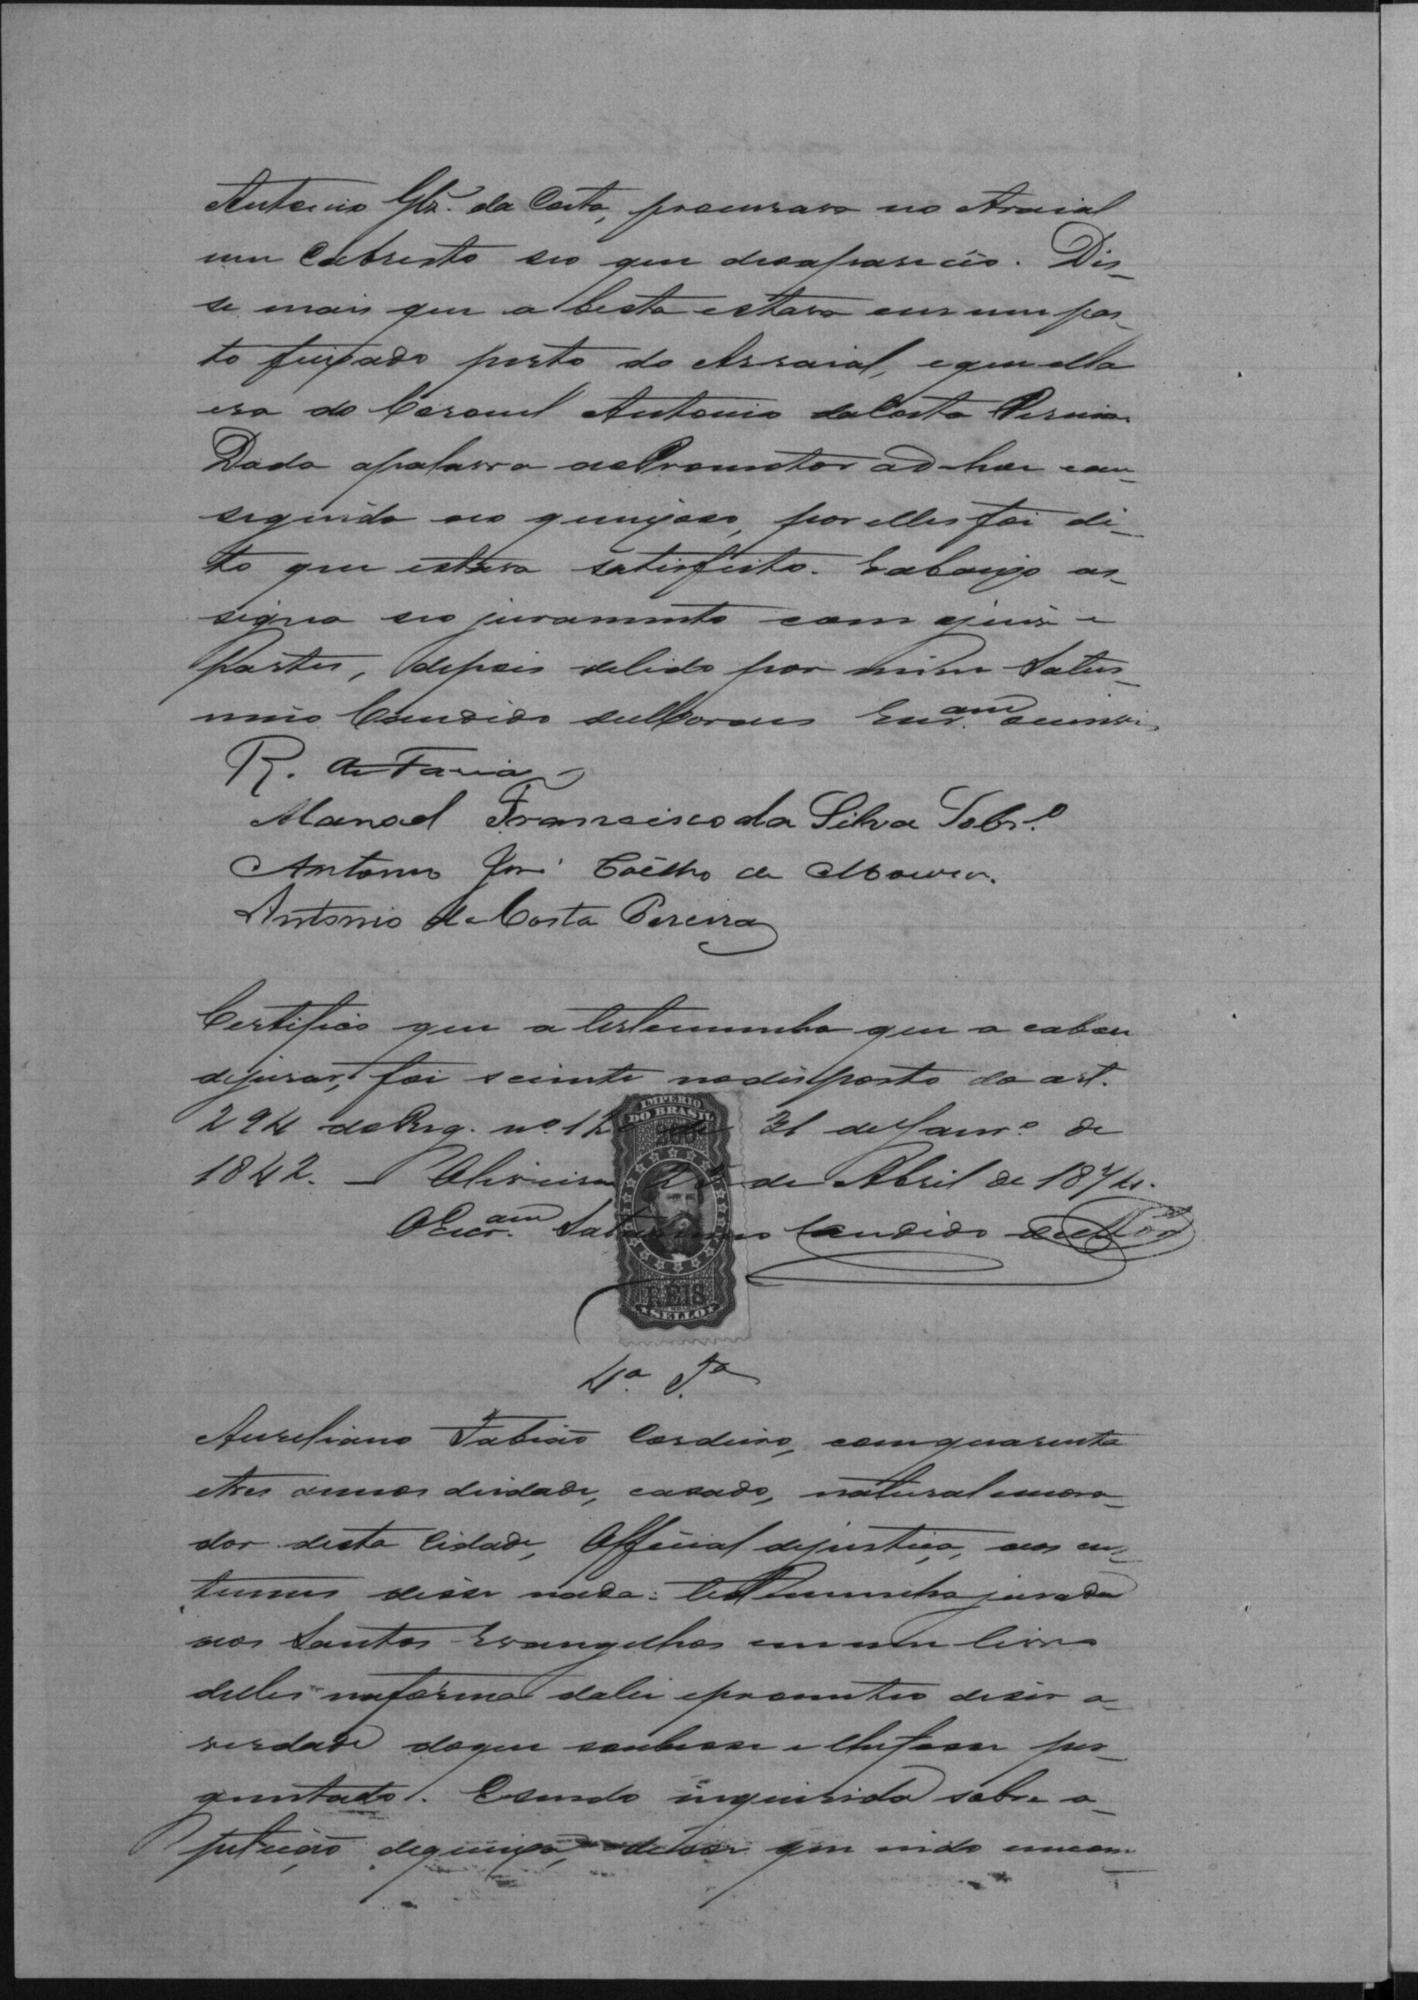 Antonio Glz. da Costa, procurava no Arraial
um Cabresto seo que desapareceo. Dis-
se mais que a besta estava em um pas-
to feixado perto do Arraial, e que ella
era do Coronel Antonio da Costa Pereira.
Dada apalavra ao Promotor ad-hoc e em
seguida ao queixoso, por elles foi di-
to que estava satisfeito. E abaixo as-
signa seo juramento com o juiz e
partes, depois de lido por mim Satur-
nino Candido de Escr.am oescrevi
R. de Faria
Manoel Francisco da Silva Sobr.o
Antonio José Coêlho de Moura.
Antonio da Costa Pereira
Certifico que a testemunha que a cabou
dejurar, foi sciente no disposto do art.
294 do Reg. nº 12 de 31 de Janr.o de
1842. Oliveira 2 de Abril de 1874.
O Escr.am Saturnino Candido de
IMPERIO
DO BRASIL
200
REIS
SELLO
4ª Tª
Aureliano Fabião Cordeiro, com quarenta
etres annos deidade, casado, natural emora-
dor desta Cidade, Official dejustiça, aos cus-
tumes disse nada: testemunha jurada
aos Santos Evangelhos em um livro
delles na forma dalei eprometteo diser a
verdade doque soubesse e lhe fosse per-
guntado. E sendo inquirida sobre a
petição dequeixa, disse que indo em com